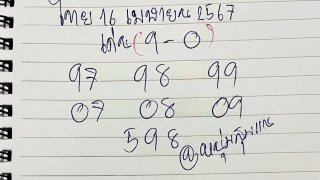 ไทย 16 เมษายน 2567
เด่น (9-0)
97 98 99
07 08 09
598